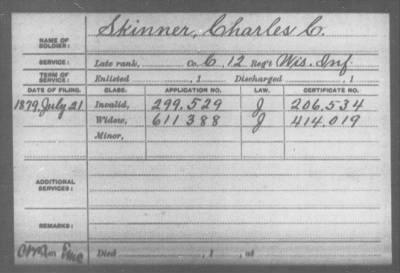 NAME OF SOLDIER: Skinner, Charles C.
SERVICE: Late rank, Co. C, 12 Reg't Wis. Inf.
TERM OF SERVICE: Enlisted , 1 Discharged , 1
DATE OF FILING. CLASS. APPLICATION NO. LAW. CERTIFICATE NO.
1879, July 21 Invalid, 299.529 J 206.534
Widow, 611388 J 414.019
Minor,
ADDITIONAL SERVICES:
REMARKS:
Died , 1 , at